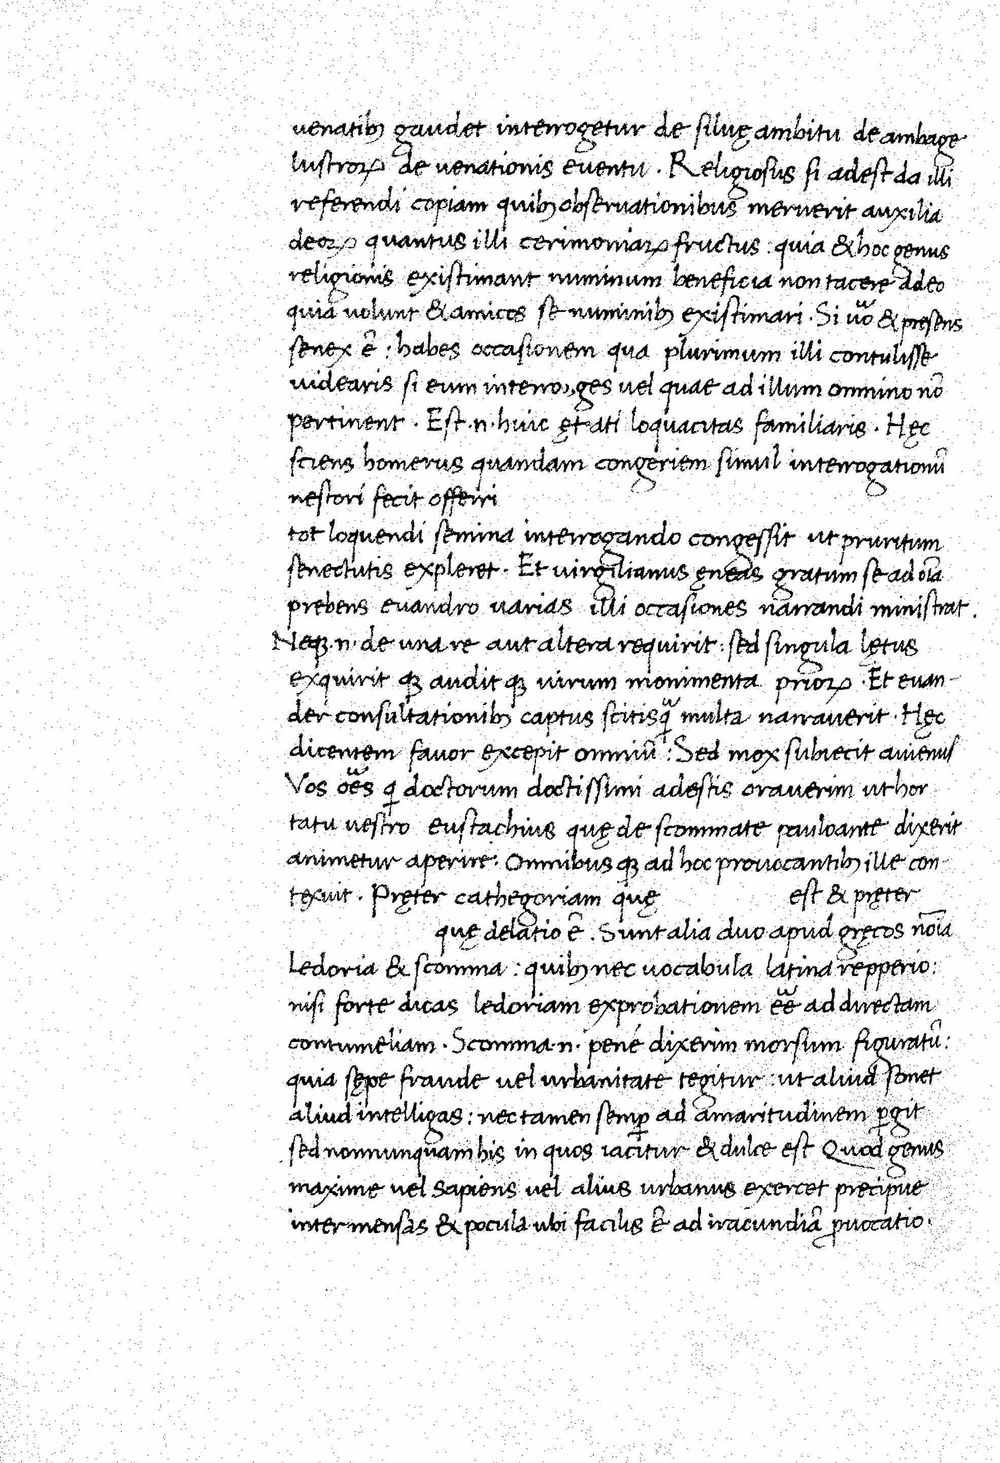 uenatibꝫ gaudet interrogetur de siluę ambitu de ambage
lustroꝝ de uenationis euentu . Religiosus si adest da illi
referendi copiam quibꝫ obseruationibus meruerit auxilia
deoꝝ quantus illi cerimoniaꝝ fructus : quia & hoc genus
religionis existimant numinum beneficia non tacere Adeo
quia uolunt & amicos se numinibꝫ existimari . Si uo̅ & pręsens
senex e̅ : habes occasionem qua plurimum illi contulisse
uidearis si eum interroges uel quae ad illum omnino no̅
pertinent . Est .n. huic ętati loquacitas familiaris . Hęc
sciens homerus quandam congeriem simul interrogationu̅
nestori fecit offerri
tot loquendi semina interrogando congessit ut pruritum
senectutis expleret . Et uirgilianus ęneas gratum se ad oi̅a
prebens euandro uarias illi occasiones narrandi ministrat .
Neqꝫ .n. de una re aut altera requirit : sed singula lętus
exquirit qꝫ audit qꝫ uirum monimenta prioꝝ . Et euan-
der consultationibꝫ captus scitis qͣ multa narrauerit . Hęc
dicentem fauor excepit omniu̅ : Sed mox subiecit auienus
Vos oe̅s qi doctorum doctissimi adestis orauerim ut hor
tatu uestro eustachius quę de scommate pauloante dixerit
animetur aperire . Omnibus qꝫ ad hoc prouocantibꝫ ille con-
texuit . Pręter cathegoriam quę est & pręter
quę delatio e̅ . Sunt alia duo apud gręcos no̅ia
Ledoria & scomma : quibꝫ nec uocabula latina repperio :
nisi forte dicas ledoriam exprobationem ee̅ ad directam
contumeliam . Scomma .n. pené dixerim morsum figuratu̅ :
quia sępe fraude uel urbanitate tegitur : ut aliud sonet
aliud intelligas : nec tamen semꝑ ad amaritudinem ꝑgit
sed nonnunquam his in quos iacitur & dulce est Quod genus
maxime uel sapiens uel alius urbanus exercet precipue
inter mensas & pocula ubi facilis e̅ ad iracundia̅ ꝓuocatio .